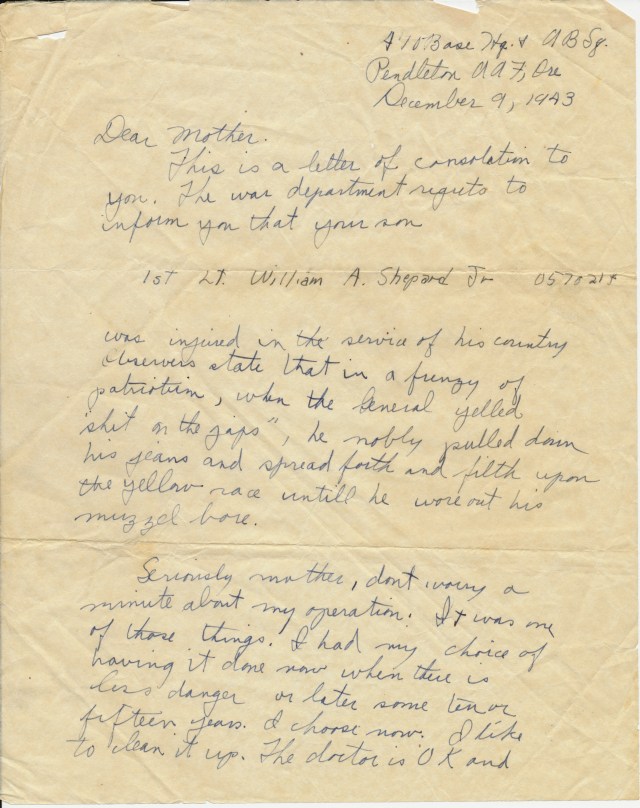 470 Base Hq. & A B Sq.
Pendleton AAF, Ore
December 9, 1943
Dear Mother.
This is a letter of consolation to
you. The war department regrets to
inform you that your son
1st Lt. William A. Shepard Jr 0570214
was injured in the service of his country
Observers state that in a frenzy of
patriotism, when the General yelled
"shit on the japs", he nobly pulled down
his jeans and spread forth and filth upon
the yellow race untill he wore out his
muzzel bore.
Seriously mother, dont worry a
minute about my operation. It was one
of those things. I had my choice of
having it done now when there is
less danger or later some ten or
fifteen years. I choose now. I like
to clean it up. The doctor is OK and